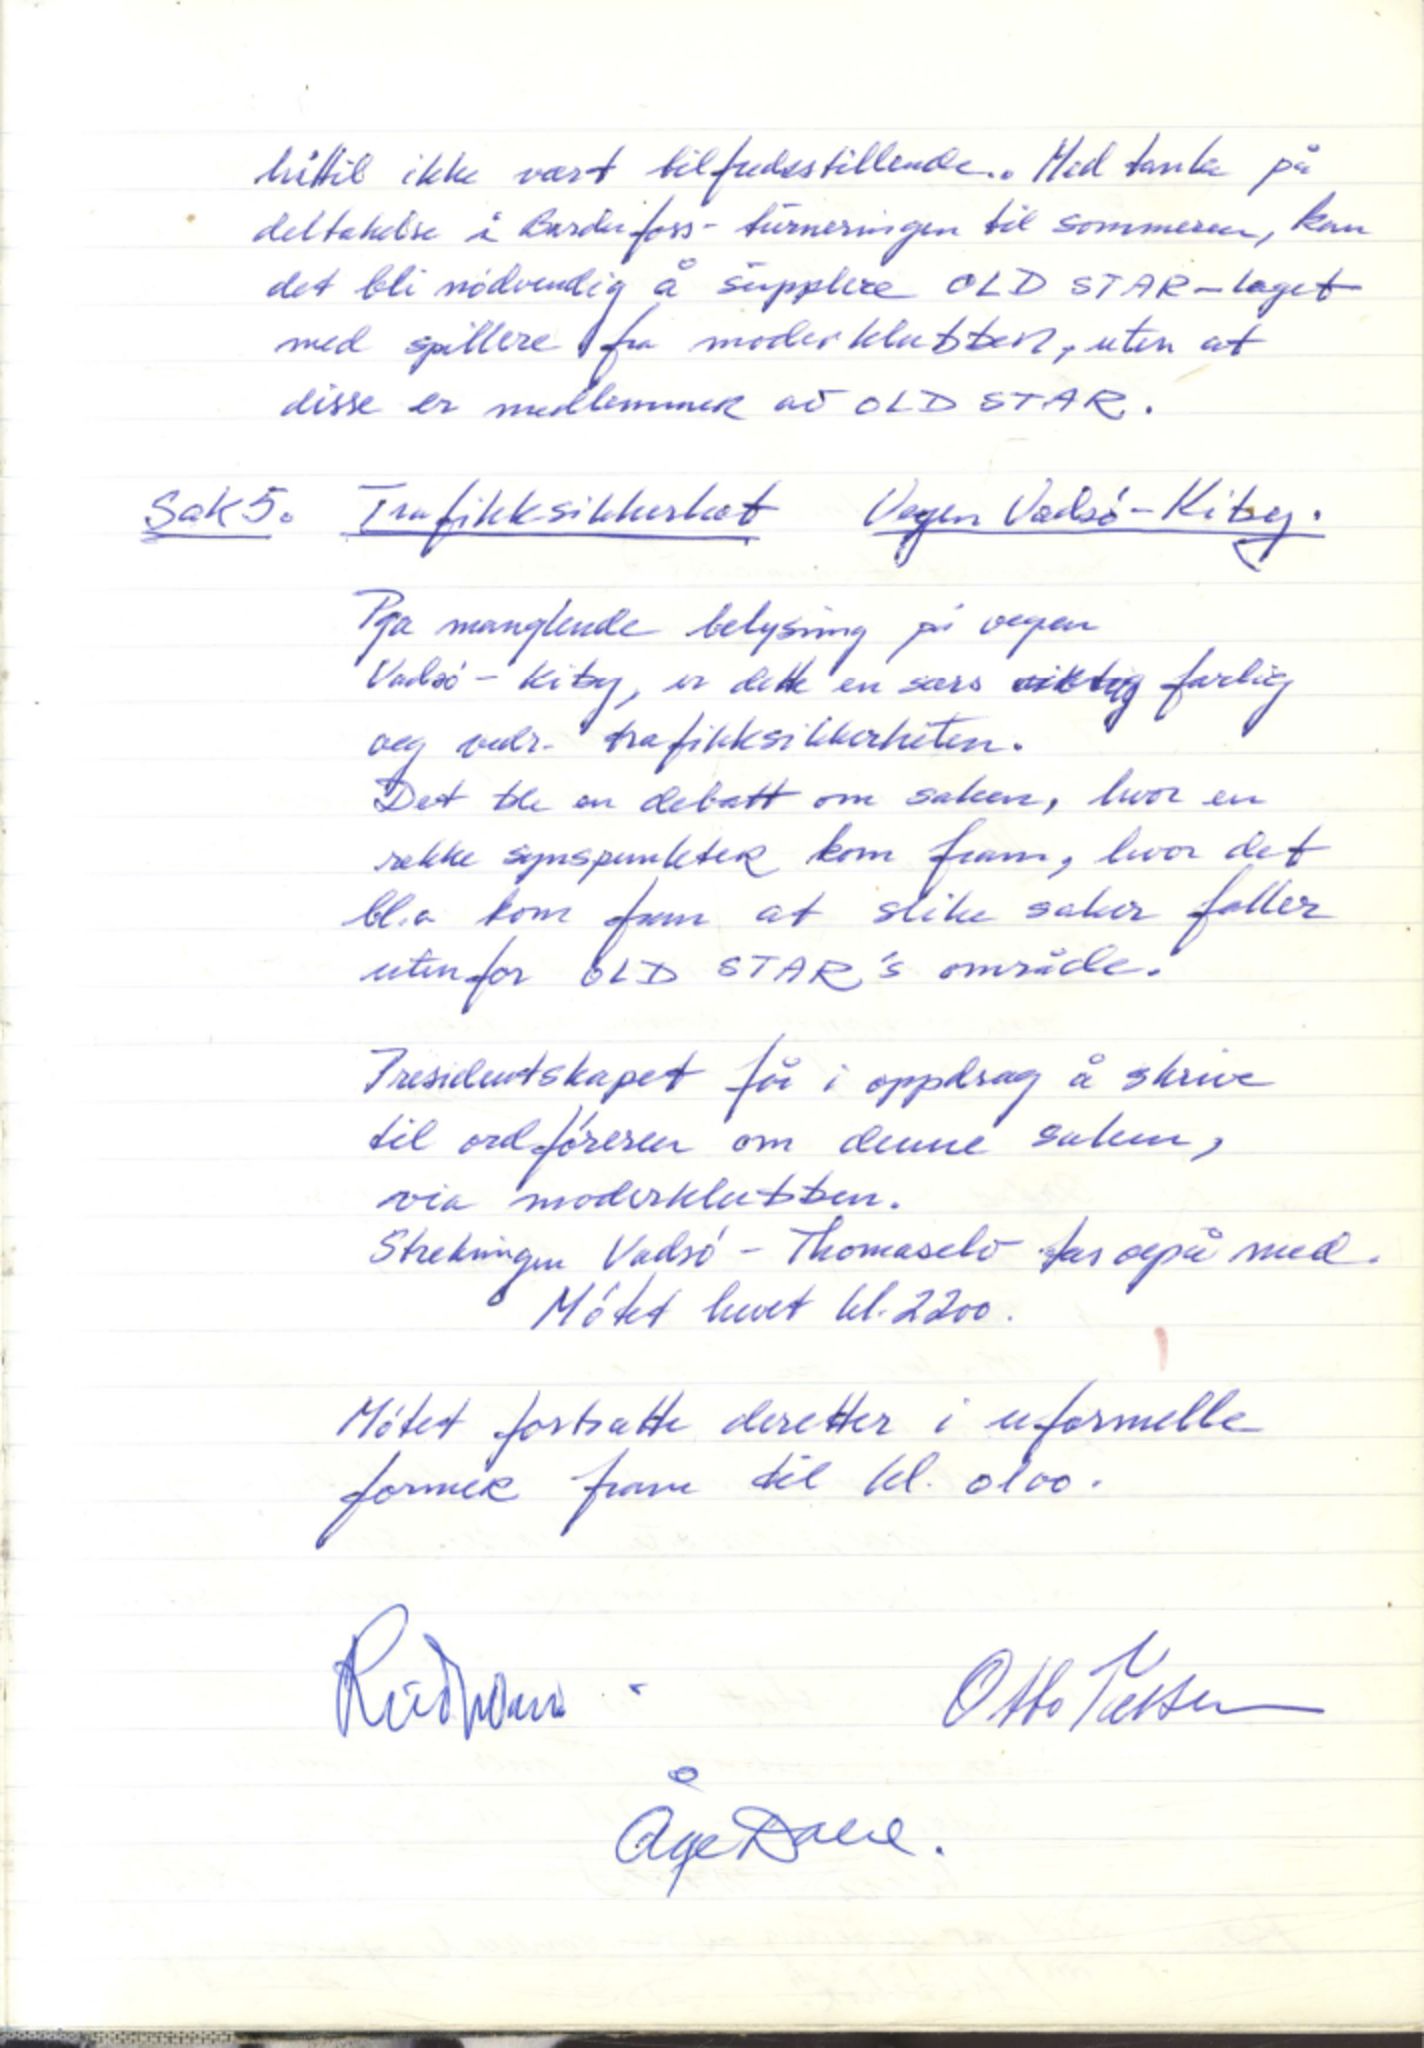 hittil ikke vært tilfredsstillende.. Med tanke på
deltakelse i Bardufoss-turneringen til sommeren, kan
det bli nødvendig å supplere OLD STAR-laget
med spillere fra moderklubben, uten at
disse er medlemmer av OLD STAR.
Sak 5. Trafikksikkerhet Vegen Vadsø-Kiby.
Pga manglende belysning på vegen
Vadsø-Kiby, er dette en særs viktig farlig
veg vedr. trafikksikkerheten.
Det ble en debatt om saken, hvor en
rekke synspunkter kom fram, hvor det
bl.a kom fram at slike saker faller
utenfor OLD STAR's område.
Presidentskapet får i oppdrag å skrive
til ordføreren om denne saken,
via moderklubben.
Strekningen Vadsø - Thomaselv tas også med.
Møtet hevet kl. 2200.
Møtet fortsatte deretter i uformelle
former fram til kl. 0100.
Otto
Åge